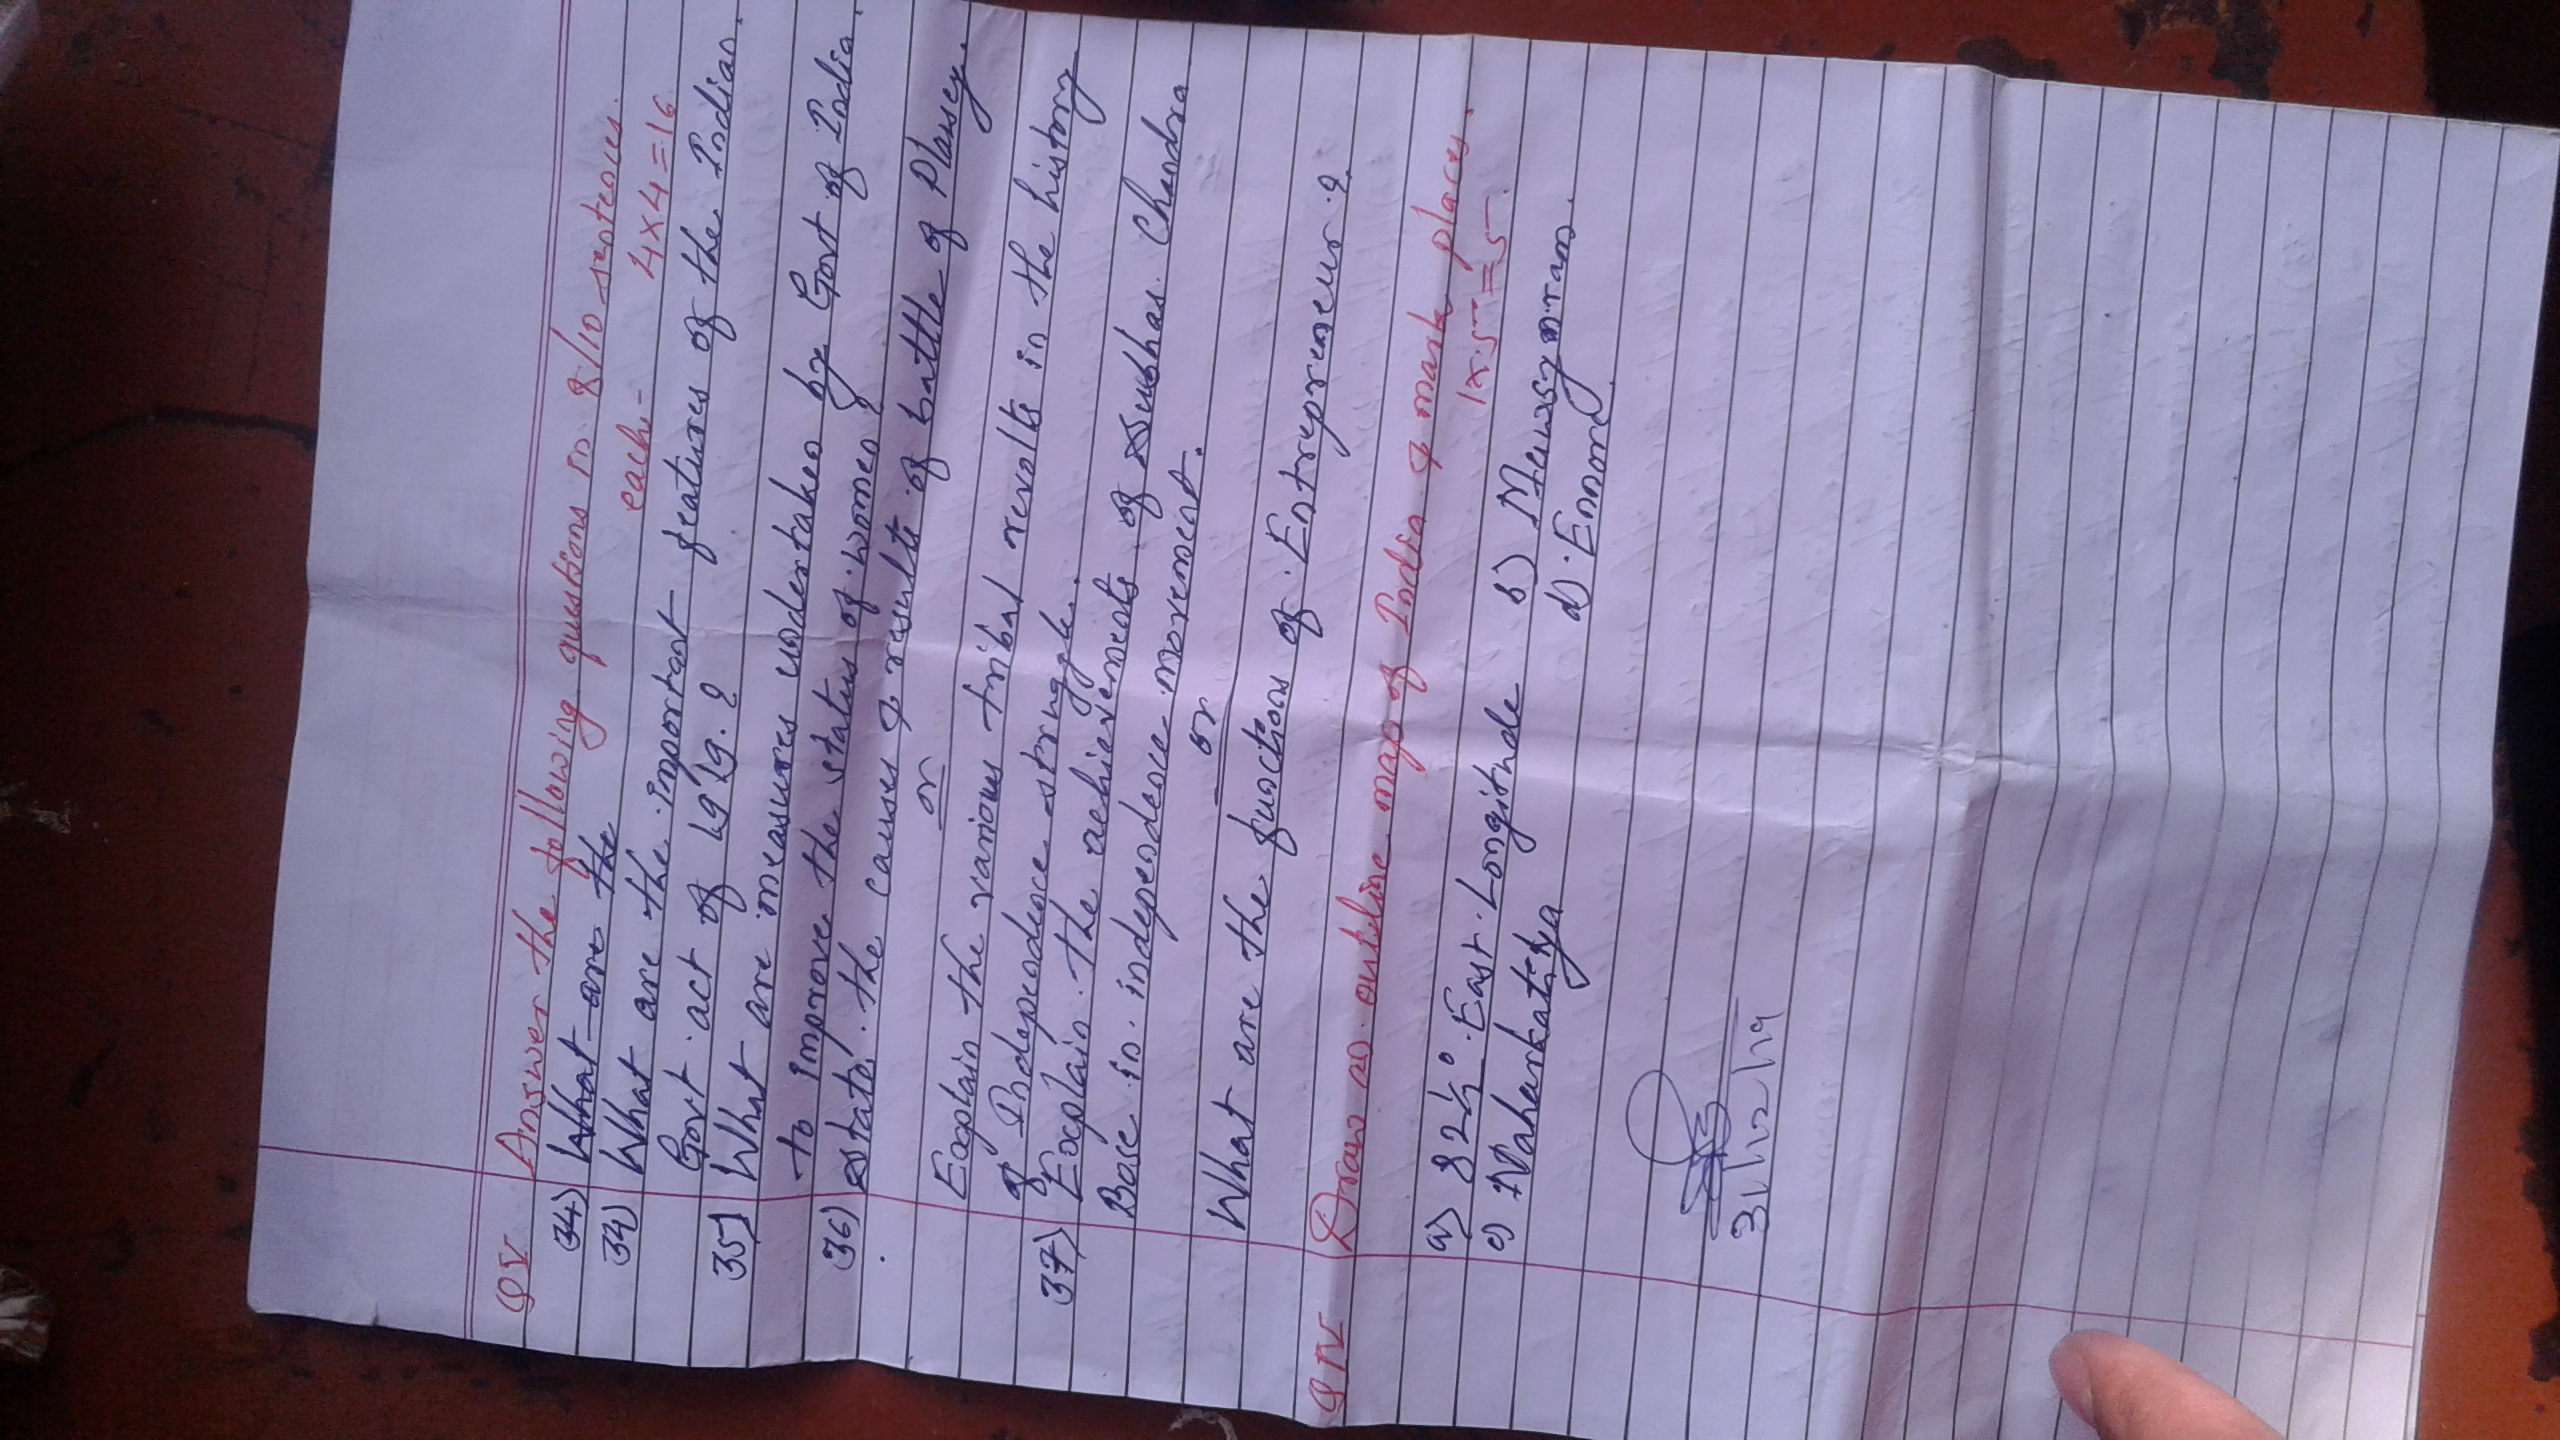 QV Answer the following questions in 8/10 sentences
each- 4x4=16
34) What are the
34) What are the important features of the Indian
Govt. act of 1919.?
35) What are measures undertaken by Govt of India
to improve the status of women?
36) state the causes & results of battle of Plassey.
or
Explain the various tribal revolts in the history
of Independence struggle.
37) Explain the achievements of Subhas Chandra
Bose in independence movement.
or
What are the functions of Entrepreneur.?
Q IV Draw an outline map of India & mark places.
1x5=5
a) 82½° East Longitude b) Mawsynram
c) Naharkatiya d) Ennore
31/12/19